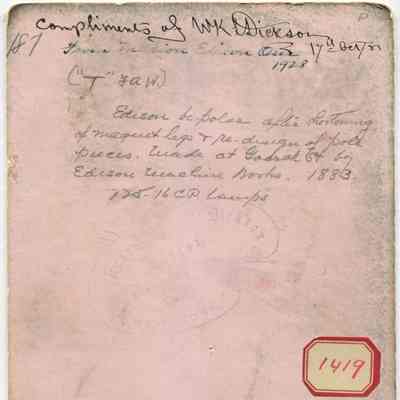 Compliments of WKL Dickson
187 17th Oct/
1928
("T" FaW.)
Edison bi polar after shortening
of magnet legs & re-design of pole
pieces. Made at Goerck St by
Edison Machine Works. 1883.
125-16 CP lamps
1419